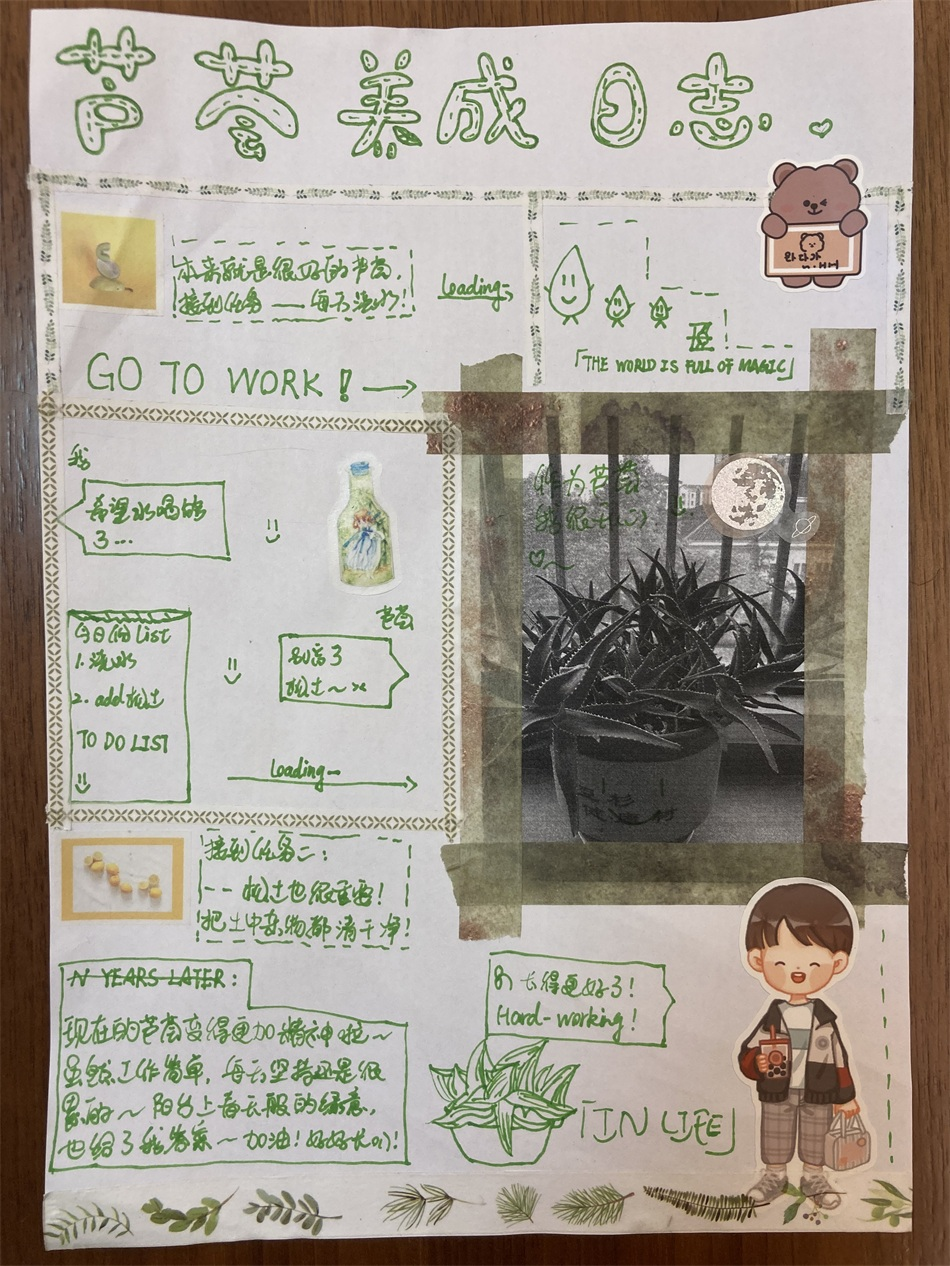 芦荟养成日志
本来就是很好的芦荟，
接到任务——每天浇水！
Loading
GO TO WORK！
「THE WORLD IS FULL OF MAGIC」
我
希望水喝够
了…
芦荟
别忘了
松土～
今日份list
1. 浇水
2. add松土
TO DO LIST
Loading
接到任务二：
--松土也很重要！
把土中杂物都清干净！
N YEARS LATER：
现在的芦荟变得更加精神啦～
虽然工作简单，每天坚持还是很
累的～阳台上春天般的绿意，
也给了我答案～加油！好好长大！
长得更好了！
Hard-working！
「IN LIFE」